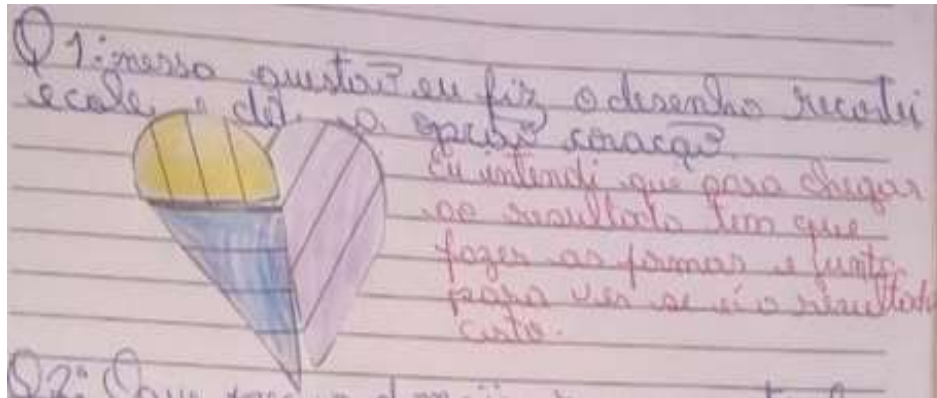 Q1: nessa questaõ eu fiz o desenho recortei
e cole e dei a opisaõ coraçaõ.
Eu intendi que para chegar
ao resultado tem que
fazer as formas e junta
para ver se é o resultado
certo.
Q2: